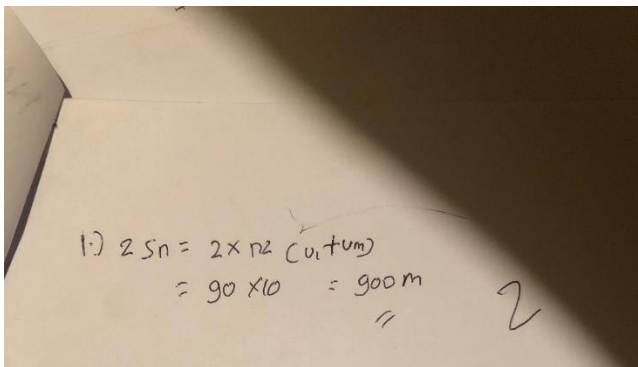 1.) 2 Sn = 2 × n2 (U1 + Um)
= 90 × 10 = 900 m
2